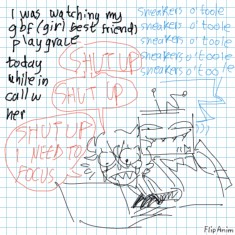 I was watching my
gbf (girl best friend)
play grace
today
while in
call w
her
sneakers o'toole
sneakers o'toole
sneakers o'toole
sneakers o'toole
sneakers o'toole
SHUT UP
SHUT UP
SHUT UP
I NEED TO
FOCUS
FlipAnim